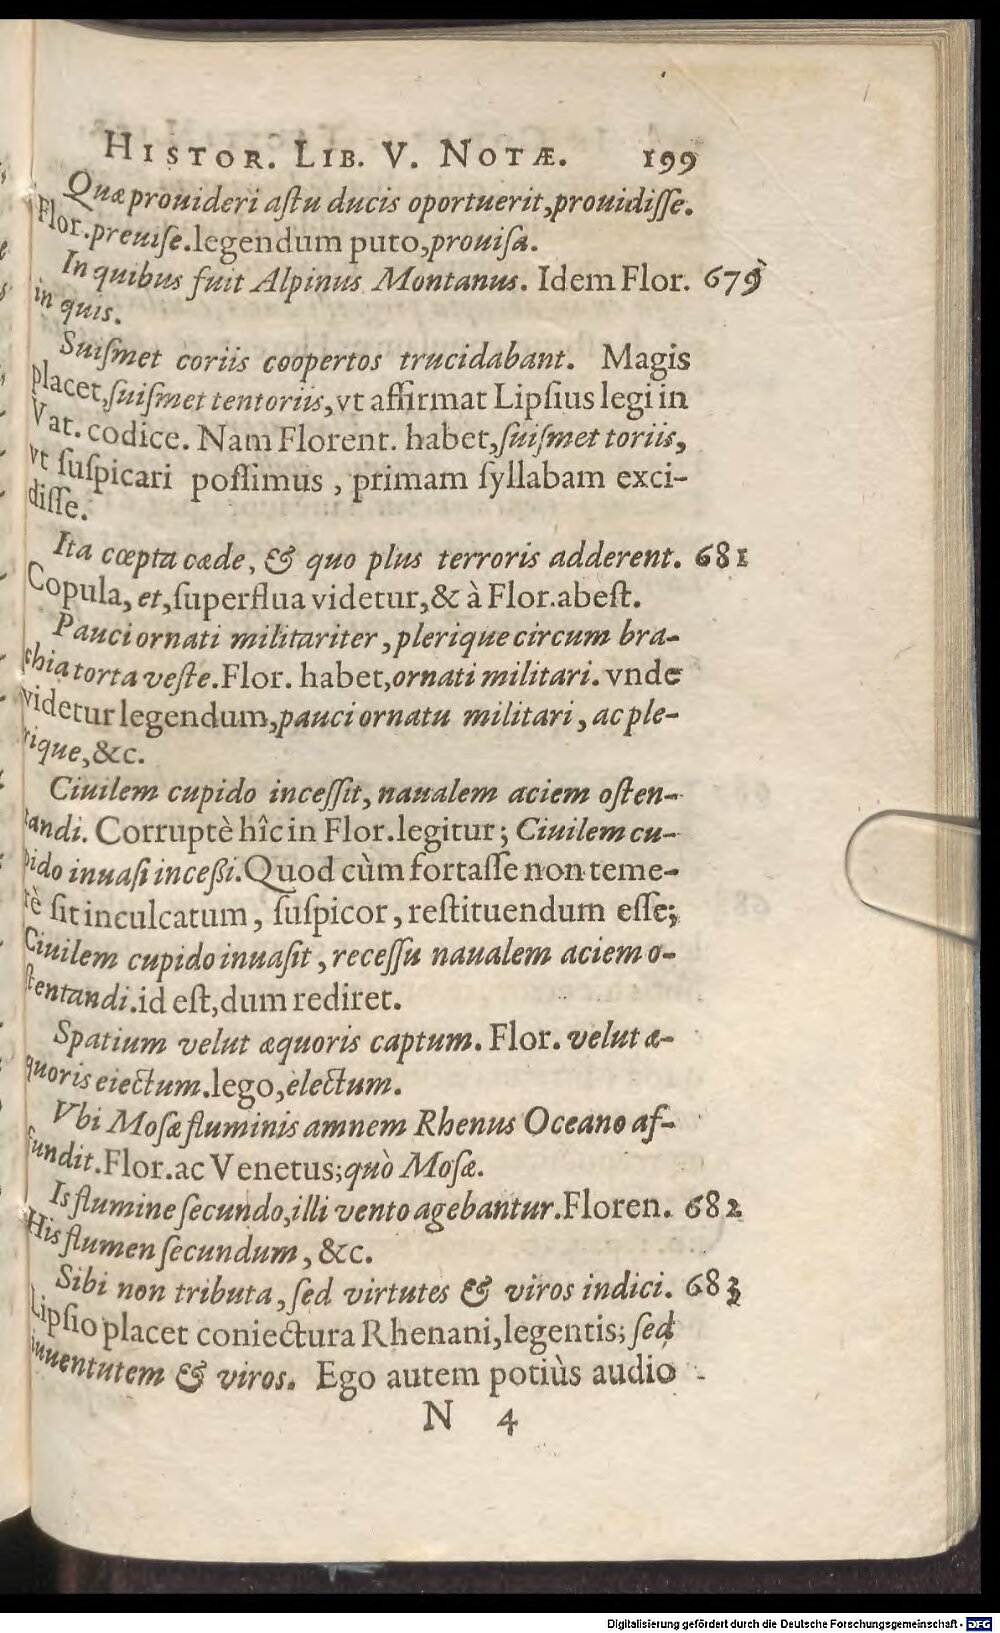 HISTOR. LIB. V. NOTÆ. 199
Quæ prouideri aſtu ducis oportuerit, prouidiſſe.
Flor. preuiſe. legendum puto, prouiſa.
In quibus fuit Alpinus Montanus. Idem Flor. 679
in quis.
Suiſmet coriis coopertos trucidabant. Magis
placet, ſuiſmet tentoriis, vt affirmat Lipſius legi in
Vat. codice. Nam Florent. habet, ſuiſmet toriis,
vt ſuſpicari poſſimus, primam ſyllabam exci-
diſſe.
Ita cœpta cæde, & quo plus terroris adderent. 681
Copula, et, ſuperflua videtur, & à Flor. abeſt.
Pauci ornati militariter, plerique circum bra-
chia torta veſte. Flor. habet, ornati militari. vnde
videtur legendum, pauci ornatu militari, ac ple-
rique, &c.
Ciuilem cupido inceſſit, naualem aciem oſten-
tandi. Corruptè hîc in Flor. legitur; Ciuilem cu-
pido inuaſi inceßi. Quod cùm fortaſſe non teme-
rè ſit inculcatum, ſuſpicor, reſtituendum eſſe;
Ciuilem cupido inuaſit, receſſu naualem aciem o-
ſtentandi. id eſt, dum rediret.
Spatium velut æquoris captum. Flor. velut æ-
quoris eiectum. lego, electum.
Vbi Moſæ fluminis amnem Rhenus Oceano af-
fundit. Flor. ac Venetus; quò Moſæ.
Is flumine ſecundo, illi vento agebantur. Floren. 682
His flumen ſecundum, &c.
Sibi non tributa, ſed virtutes & viros indici. 683
Lipſio placet coniectura Rhenani, legentis; ſed
iuuentutem & viros. Ego autem potiùs audio
N 4
Digitalisierung gefördert durch die Deutsche Forschungsgemeinschaft - DFG